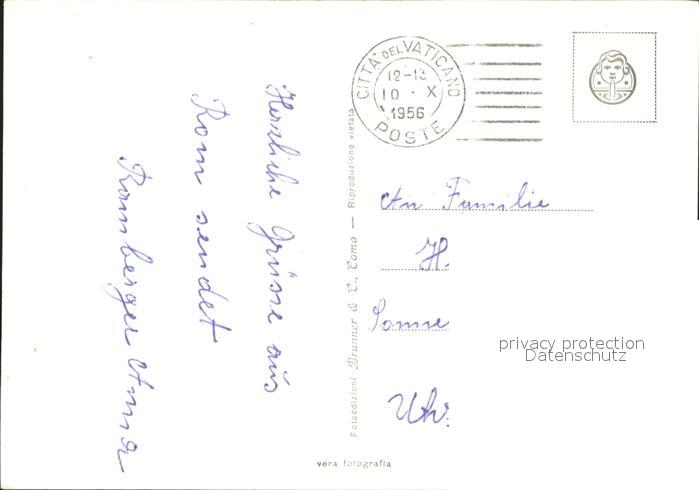 Herzliche Grüsse aus
Rom sendet
Ramberger Anna
CITTÀ DEL VATICANO
12-13
10 · X
1956
POSTE
Fotoedizioni Brunner & C., Como — Riproduzione vietata
An Familie
H.
Sonne
Uhr.
privacy protection
Datenschutz
vera fotografia